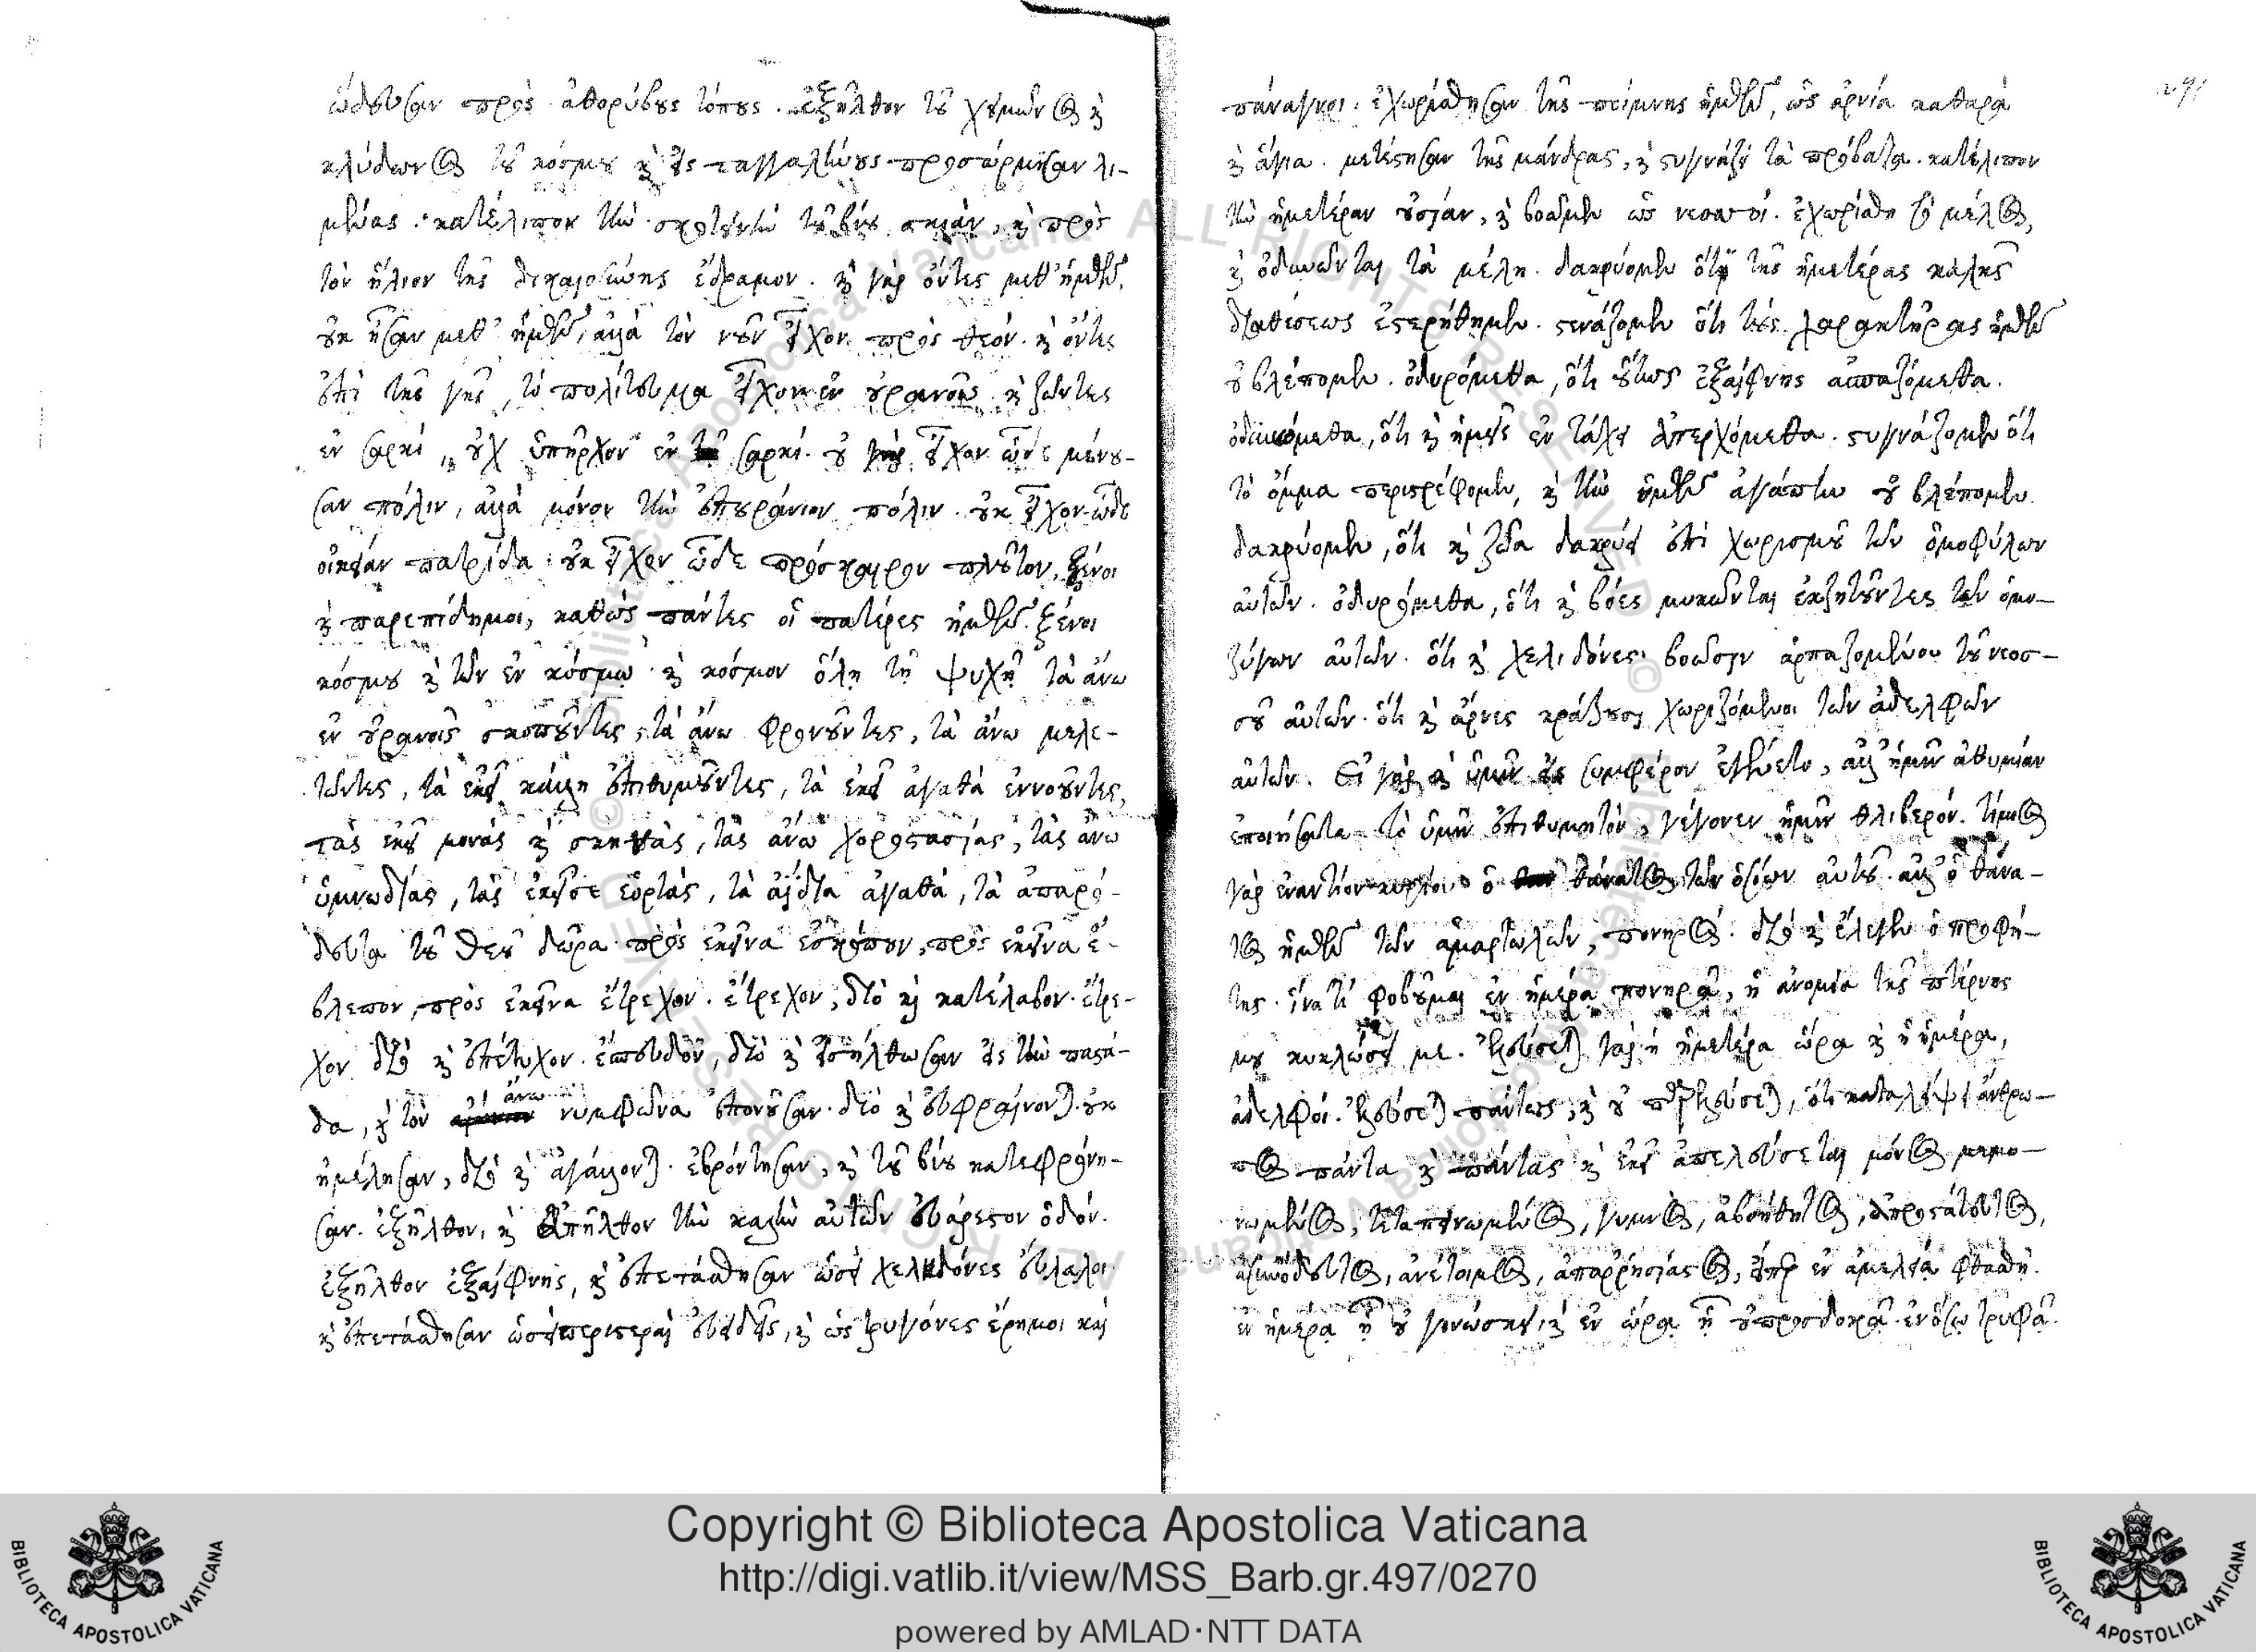 ὥδευσαν πρὸς ἀθορύβους τόπους. ἐξῆλθον τοῦ χειμῶνος καὶ
κλύδωνος τοῦ κόσμου καὶ εἰς παγγαληνοὺς προσώρμησαν λι-
μένας. κατέλιπον τὴν σκοτεινὴν τοῦ βίου σκιὰν, καὶ πρὸς
τὸν ἥλιον τῆς δικαιοσύνης ἔδραμον. καὶ γὰρ ὄντες μεθ' ἡμῶν,
οὐκ ἦσαν μεθ' ἡμῶν, ἀλλὰ τὸν νοῦν εἶχον πρὸς θεόν. καὶ ὄντες
ἐπὶ τῆς γῆς, τὸ πολίτευμα εἶχον ἐν οὐρανοῖς. καὶ ζῶντες
ἐν σαρκί, οὐχ ὑπῆρχον ἐν σαρκί. οὐ γὰρ εἶχον ὧδε μένου-
σαν πόλιν, ἀλλὰ μόνον τὴν ἐπουράνιον πόλιν. οὐκ εἶχον ὧδε
οἰκείαν πατρίδα. οὐκ εἶχον ὧδε πρόσκαιρον πλοῦτον, ξένοι
καὶ παρεπίδημοι, καθὼς πάντες οἱ πατέρες ἡμῶν. ξένοι
κόσμου καὶ τῶν ἐν κόσμῳ. καὶ κόσμον ὅλῃ τῇ ψυχῇ τὰ ἄνω
ἐν οὐρανοῖς σκοποῦντες, τὰ ἄνω φρονοῦντες, τὰ ἄνω μελε-
τῶντες, τὰ ἐκεῖ κάλλη ἐπιθυμοῦντες, τὰ ἐκεῖ ἀγαθὰ ἐννοοῦντες,
τὰς ἐκεῖ μονὰς καὶ σκηνὰς, τὰς ἄνω χοροστασίας, τὰς ἄνω
ὑμνωδίας, τὰς ἐκεῖσε ἑορτὰς, τὰ ἀΐδια ἀγαθὰ, τὰ ἀπαρό-
δευτα τοῦ θεοῦ δῶρα. πρὸς ἐκεῖνα ἐσκόπουν, πρὸς ἐκεῖνα ἔ-
βλεπον, πρὸς ἐκεῖνα ἔτρεχον. ἔτρεχον, διὸ καὶ κατέλαβον. ἔτρε-
χον διὸ καὶ ἐπέτυχον. ἔσπευδον, διὸ καὶ εἰσήλθωσαν εἰς τὴν παστά-
δα, καὶ τὸν ἄνω νυμφῶνα ἐπονοῦσαν. διὸ καὶ εὐφραίνονται. οὐκ
ἠμέλησαν, διὸ καὶ ἀγάλλονται. ἐβρόντησαν, καὶ τοῦ βίου κατεφρόνη-
σαν. ἐξῆλθον, καὶ ἀπῆλθον τὴν καλὴν αὐτῶν εὐάρεστον ὁδόν.
ἐξῆλθον ἐξαίφνης, καὶ ἐπετάσθησαν ὡσεὶ χελιδόνες εὔλαλοι
καὶ ἐπετάσθησαν ὡσεὶ περιστεραὶ εὐειδεῖς, καὶ ὡς τρυγόνες ἔρημοι καὶ
πάναγνοι. ἐχωρίσθησαν τῆς ποίμνης ἡμῶν, ὡς ἀρνία καθαρὰ
καὶ ἅγια. μετέστησαν τῆς μάνδρας, καὶ στυγνάζει τὰ πρόβατα. κατέλιπον
τὴν ἡμετέραν ἑστίαν, καὶ βοῶμεν ὡς νεοσσοί. ἐχωρίσθη τὸ μέλος,
καὶ ὀδυνῶνται τὰ μέλη. δακρύομεν ὅτι τῆς ἡμετέρας καλῆς
διαθέσεως ἐστερήθημεν. στενάζομεν ὅτι τοὺς χαρακτῆρας ἡμῶν
οὐ βλέπομεν. ὀδυρόμεθα, ὅτι οὕτως ἐξαίφνης ἀποσπαζόμεθα.
ὀδυνώμεθα, ὅτι καὶ ἡμεῖς ἐν τάχει ἀπερχόμεθα. στυγνάζομεν ὅτι
τὸ ὄμμα περιστρέφομεν, καὶ τὴν ὑμῶν ἀγάπην οὐ βλέπομεν.
δακρύομεν, ὅτι καὶ ζῶα δακρύει ἐπὶ χωρισμοῦ τῶν ὁμοφύλων
αὐτῶν. ὀδυρόμεθα, ὅτι καὶ βόες μυκῶνται ἐκζητοῦντες τῶν ὁμο-
ζύγων αὐτῶν. ὅτι καὶ χελιδόνες βοῶσιν ἁρπαζομένου τοῦ νεοσ-
σοῦ αὐτῶν. ὅτι καὶ ἄρνες κράζουσι χωριζόμενοι τῶν ἀδελφῶν
αὐτῶν. Εἰ γὰρ καὶ ὑμῖν συμφέρον ἐγένετο, ἀλλ' ἡμῖν ἀθυμίαν
ἐποιήσατε. τὸ ὑμῖν ἐπιθυμητὸν, γέγονεν ἡμῖν θλιβερόν. τίμιος
γὰρ ἐναντίον κυρίου ὁ θάνατος τῶν ὁσίων αὐτοῦ. ἀλλ' ὁ θάνα-
τος ἡμῶν τῶν ἁμαρτωλῶν, πονηρός. διὸ καὶ ἔλεγεν ὁ προφή-
της. ἵνα τί φοβοῦμαι ἐν ἡμέρᾳ πονηρᾷ, ἡ ἀνομία τῆς πτέρνης
μου κυκλώσει με. ἐλεύσεται γὰρ ἡ ἡμετέρα ὥρα καὶ ἡ ἡμέρα,
ἀδελφοί. ἐλεύσεται πάντως, καὶ οὐ παρελεύσεται, ὅτι καταλείψει ἄνθρω-
πος πάντα καὶ πάντας καὶ ἐκεῖ ἀπελεύσεται μόνος μεμο-
νωμένος, τεταπεινωμένος, γυμνὸς, ἀβοήθητος, ἀπροστάτευτος,
ἀσυνόδευτος, ἀνέτοιμος, ἀπαρρησίαστος, εἴπερ ἐν ἀμελείᾳ φθασθῇ.
ἐν ἡμέρᾳ ᾗ οὐ γινώσκει, καὶ ἐν ὥρᾳ ᾗ οὐ προσδοκᾷ. ἐν ὅσῳ τρυφᾷ.
Copyright © Biblioteca Apostolica Vaticana
http://digi.vatlib.it/view/MSS_Barb.gr.497/0270
powered by AMLAD·NTT DATA
BIBLIOTECA APOSTOLICA VATICANA
BIBLIOTECA APOSTOLICA VATICANA